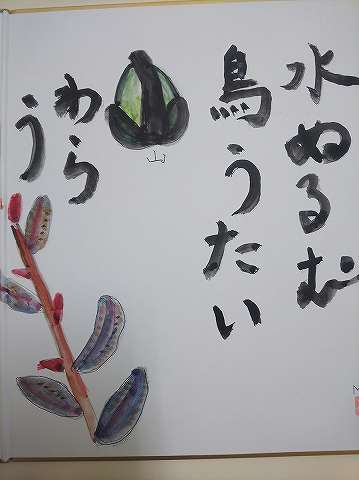 水ぬるむ
鳥うたい
山
わら
う